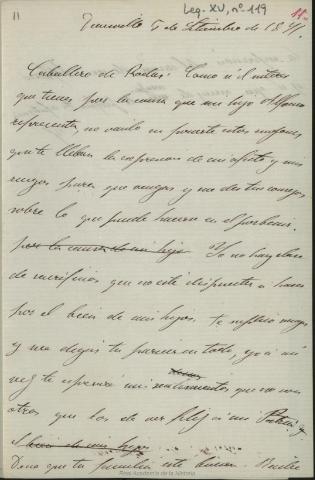 Leg. XV, nº 119
11
Deauville 5 de Setiembre de 1871.
Caballero de Rodas: Como sé el interes
que tienes por la causa que mi hijo Alfonso
representa, no vacilo en ponerte estos renglones
que te llevan la expresion de mi afecto y mis
ruegos para que vengas y me des tus consejos
sobre lo que puede hacerse en el porvenir.
por la causa de mi hijo Yo no hay clase
de sacrificios que no esté dispuesta á hacer
por el bien de mis hijos. Te suplico vengas
y me digas tu parecer en todo, yo á mi
vez te espresaré mis sentimientos que no son
otros que los de ver feliz á mi Patria y
el bien de mi hijo
Dime que tu familia esté buena.
Real Academia de la Historia